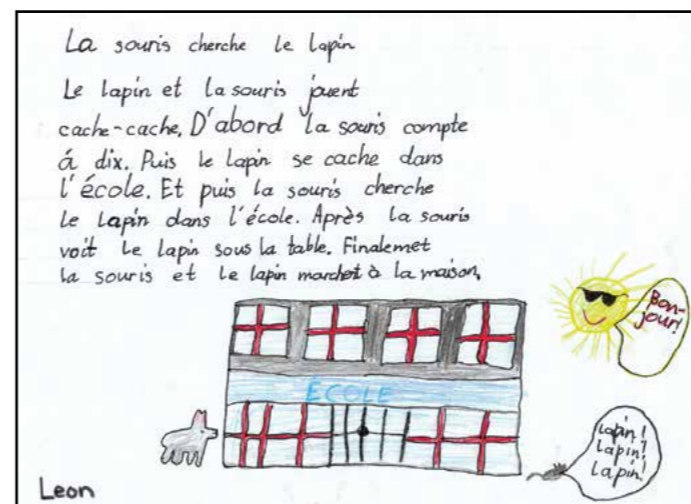 La souris cherche le lapin
Le lapin et la souris jouent
cache-cache. D'abord la souris compte
á dix. Puis le lapin se cache dans
l'école. Et puis la souris cherche
le lapin dans l'école. Après la souris
voit le lapin sous la table. Finalemet
la souris et le lapin marchet à la maison.
Bon-
jour!
ÉCOLE
Lapin!
Lapin!
Lapin!
Leon